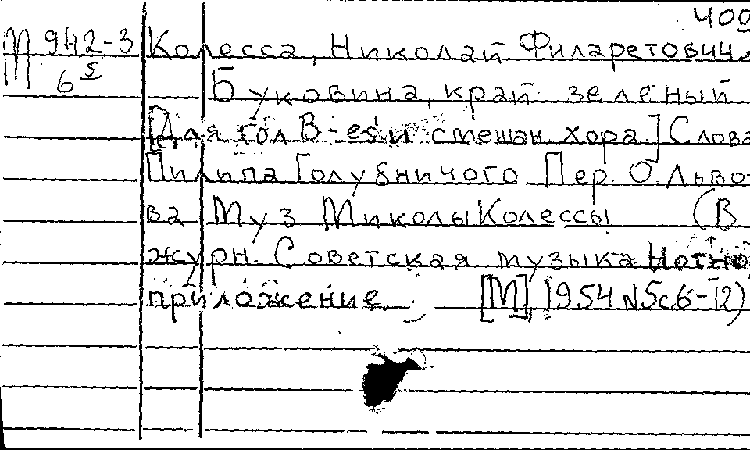 400
М 942-3 Колесса, Николай Филаретович.
6 5 Буковина, край зеленый
[Для гол В-es и смешан. хора.] Слова
Пилипа Голубничого Пер. О. Льво-
ва Муз Миколы Колессы (В
журн. Советская музыка Нотно
приложение [М], 1954 N5 с 6-12)